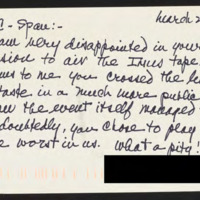 March 2
C-Span:-
am very disappointed in your
sion to air the Imus tape.
ms to me you crossed the li
taste in a much more public
the event itself managed
doubtedly, you chose to play
e worst in us. What a pity!